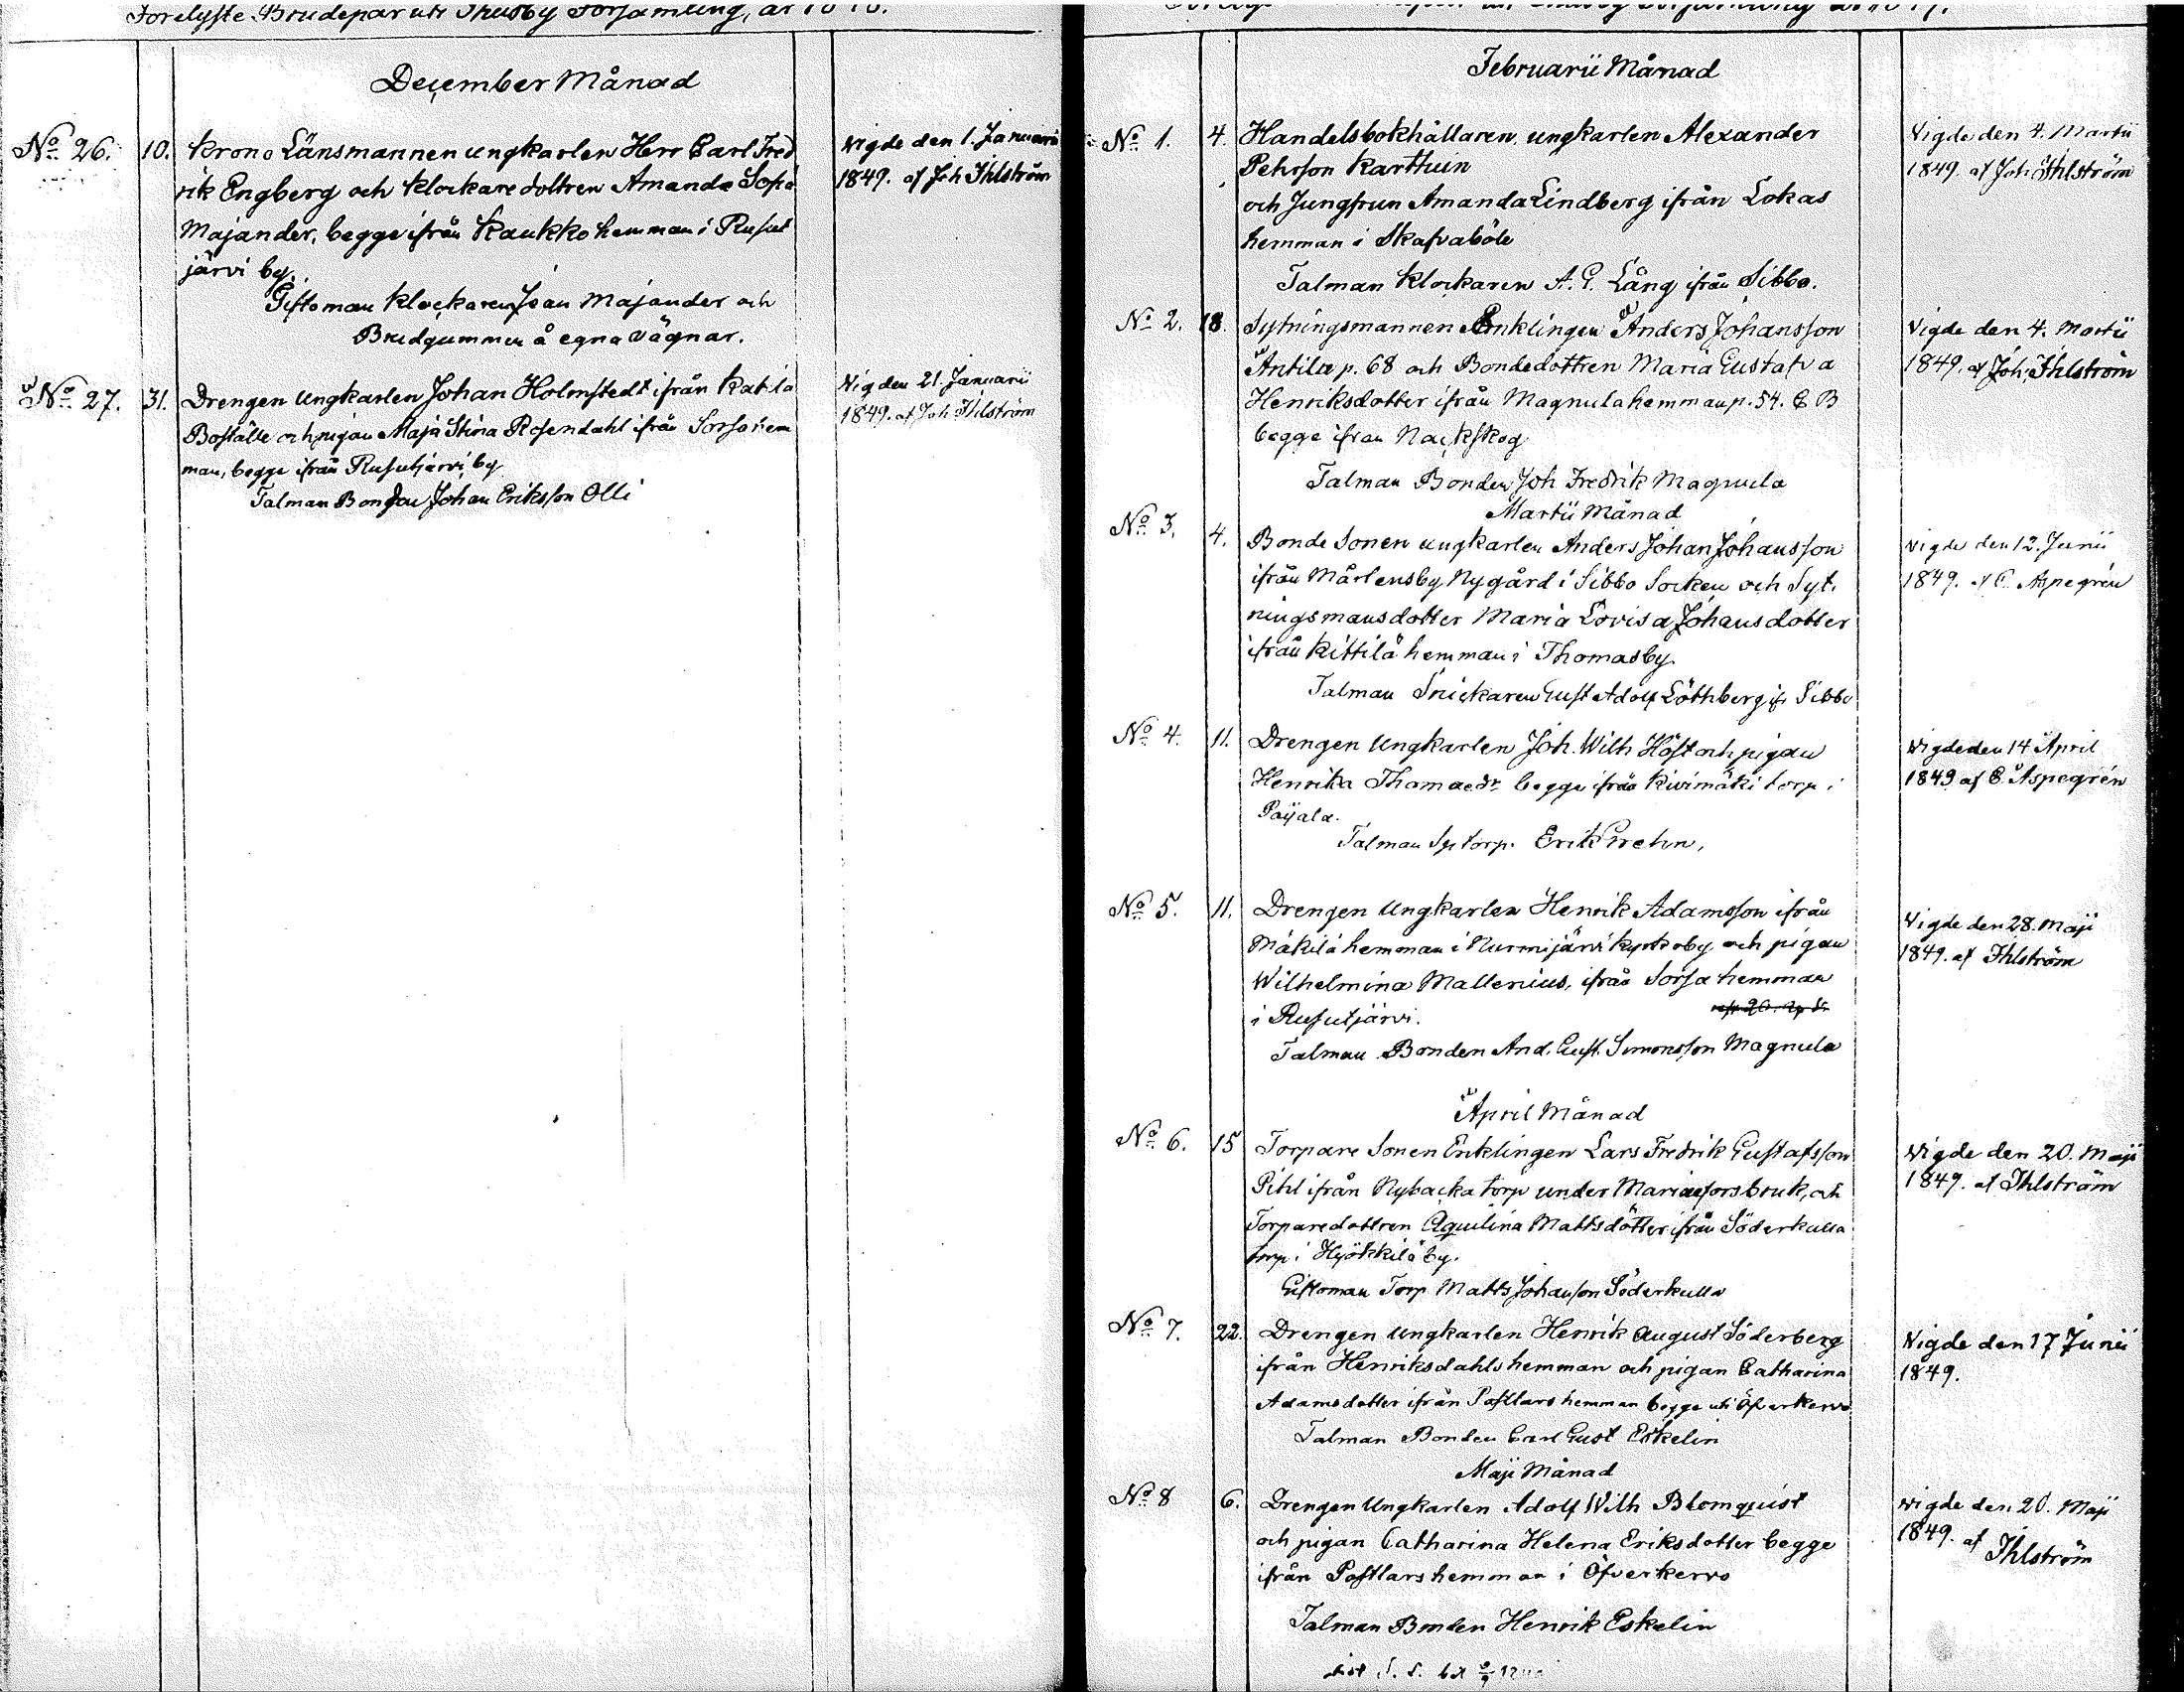 Förelyste Brudepar uti Thusby Församling, år 1848.
December Månad
No 26. 10. Krono Länsmannen ungkarlen Herr Carl Fred
rik Engberg och klockaredottren Amanda Sofia
Majander, begge ifrån Kaukko hemman i Rusut
järvi by.
Giftoman klockaren Joan Majander och
Brudgummen å egna vägnar.
Vigde den 1. Januarii
1849. af Joh Ihlström
No 27. 31. Drengen ungkarlen Johan Holmstedt ifrån Katila
Boställe och pigan Maja Stina Rosendahl ifrån Sorsa hem
man, begge ifrån Rusutjärvi by
Talman Bonden Johan Eriksson Olli
Vigde den 21. Januarii
1849. af Joh Ihlström
Februarii Månad
No 1. 4. Handelsbokhållaren, ungkarlen Alexander
Pehrson Karthun
och Jungfrun Amanda Lindberg ifrån Lokas
hemman i Skafvaböle
Talman klockaren A. G. Lång ifrån Sibbo.
Vigde den 4. Martii
1849. af Joh Ihlström
No 2. 18. Sytningsmannen Enklingen Anders Johansson
Antila p. 68 och Bondedottren Maria Gustafva
Henriksdotter ifrån Magnula hemman p. 54. C B
begge ifrån Nackskog
Talman Bonden Joh Fredrik Magnula
Vigde den 4. Martii
1849. af Joh. Ihlström
Martii Månad
No 3. 4. Bonde Sonen ungkarlen Anders Johan Johansson
ifrån Mårtensby Nygård i Sibbo Socken och Syt-
ningsmansdotter Maria Lovisa Johansdotter
ifrån Kittilä hemman i Thomasby.
Talman Snickaren Gust Adolf Löthberg ifr Sibbo
Vigde den 12. Junii
1849. af C. Aspegrén
No 4. 11. Drengen Ungkarlen Joh. Wilh Höst och pigan
Henrika Thomaedr begge ifrån Kivimäki torp i
Paijala.
Talman Sytorp. Erik Grehn.
Vigde den 14 April
1849 af C. Aspegrén
No 5. 11. Drengen Ungkarlen Henrik Adamsson ifrån
Mäkilä hemman i Nurmijärvi kyrkoby och pigan
Wilhelmina Mallenius, ifrån Sorsa hemman
i Rusutjärvi.
Talman Bonden And. Gust. Simonsson Magnula
Vigde den 28. Maji
1849. af Ihlström
April Månad
No 6. 15 Torpare Sonen Enklingen Lars Fredrik Gustafsson
Pihl ifrån Nybacka torp under Mariæfors bruk, och
Torparedottren Aquilina Mattsdotter ifrån Söderkulla
torp i Hyökkilä by.
Giftoman Torp Matts Johanson Söderkulla
Vigde den 20. Maji
1849. af Ihlström
No 7. 22. Drengen Ungkarlen Henrik August Söderberg
ifrån Henriksdahls hemman och pigan Catharina
Adamsdotter ifrån Postlars hemman begge uti Öfverkervo
Talman Bonden Carl Gust Eskelin
Vigde den 17 Junii
1849.
Maji Månad
No 8 6. Drengen Ungkarlen Adolf Wilh Blomquist
och pigan Catharina Helena Eriksdotter begge
ifrån Postlars hemman i Öfverkervo
Talman Bonden Henrik Eskelin
Vigde den 20. Maji
1849. af Ihlström